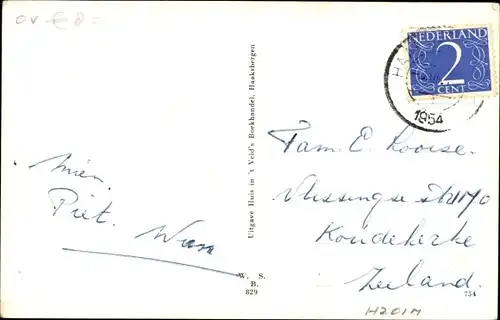 OV € 8 =
NEDERLAND
2
CENT
HA
1954
Fam. E. Kooise.
Vlissingse
Koudekerke
Zeeland.
Mien.
Piet. Wim
Uitgave Huis in 't Veld's Boekhandel, Haaksbergen
W. S.
B.
829
754
H201M